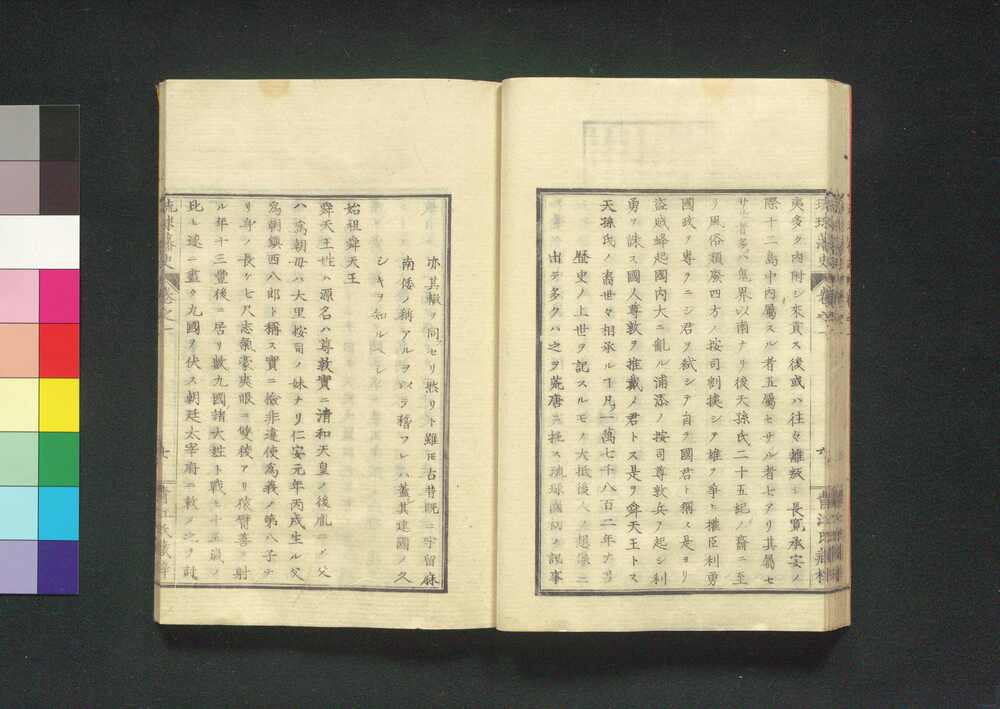 夷多ク內附シ來貢ス後或ハ往々雄級シ長寬承安ノ
際十二島中內屬スル者五屬セサル者七アリ其屬セ
サル者多ハ鬼界以南ナリ後天孫氏二十五紀ノ裔ニ至
リ風俗頹廢四方ノ按司割據シ雄ヲ爭ヒ權臣利勇
國政ヲ專ラニシ君ヲ弑シテ自ラ國君ト稱ス是ヨリ
盜賊蜂起國內大ニ亂ル浦添ノ按司尊敦兵ヲ起シ利
勇ヲ誅ス國人尊敦ヲ推戴メ君トス是ヲ舜天王トス
天孫氏ノ裔世々相承ルヿ凡一萬七千八百二年ナリ
歷史ノ上世ヲ記スルモノ大抵後人ノ想像ニ
出テ多クハ之ヲ荒唐ニ托ス琉球國初ノ記事
亦其轍ヲ同フセリ然リト雖𪜈古昔既ニ守留麻
南倭ノ稱アルヲ以テ稽フレハ蓋其建國ノ久
シキヲ知ルヘシ
始祖舜天王
舜天王姓ハ源名ハ尊敦實ニ淸和天皇ノ後胤ニメ父
ハ爲朝母ハ大里按司ノ妹ナリ仁安元年丙戌生ル父
爲朝鎭西八郎ト稱ス實ニ檢非違使爲義ノ第八子ナ
リ身ノ長ケ七尺志氣豪爽眼ニ雙稜アリ猿臂善ク射
ル年十三豐後ニ居リ數九國諸大姓ト戰ヒ十五歲ノ
比ヒ遂ニ盡ク九國ヲ伏ス朝廷太宰府ニ敕メ之ヲ討
琉球藩史 卷之一 七